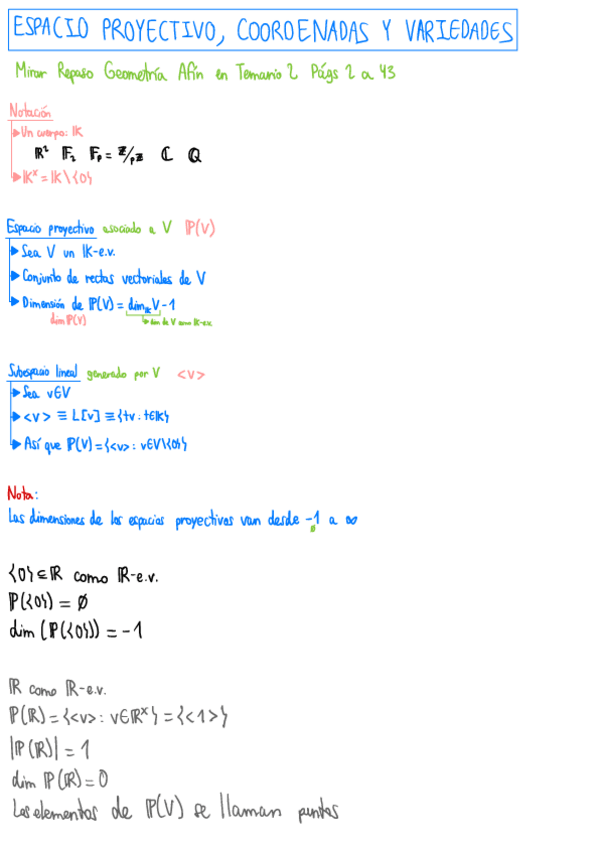 ESPACIO PROYECTIVO, COORDENADAS Y VARIEDADES
Mirar Repaso Geometría Afín en Temario 2 Págs 2 a 43
Notación
▶ Un cuerpo: 𝕂
ℝ² 𝔽₂ 𝔽ₚ = ℤ/pℤ ℂ ℚ
▶ 𝕂ˣ = 𝕂\{0}
Espacio proyectivo asociado a V ℙ(V)
▶ Sea V un 𝕂-e.v.
▶ Conjunto de rectas vectoriales de V
▶ Dimensión de ℙ(V) = dim_𝕂 V - 1
dim ℙ(V) ↳ dim de V como 𝕂-e.v.
Subespacio lineal generado por V <v>
▶ Sea v∈V
▶ <v> ≡ L[v] ≡ {tv : t∈𝕂}
▶ Así que ℙ(V) = {<v> : v∈V\{0}}
Nota:
Las dimensiones de los espacios proyectivos van desde -1 a ∞
∅
{0} ⊆ ℝ como ℝ-e.v.
ℙ({0}) = ∅
dim (ℙ({0})) = -1
ℝ como ℝ-e.v.
ℙ(ℝ) = {<v> : v∈ℝˣ} = {<1>}
|ℙ(ℝ)| = 1
dim ℙ(ℝ) = 0
Los elementos de ℙ(V) se llaman puntos